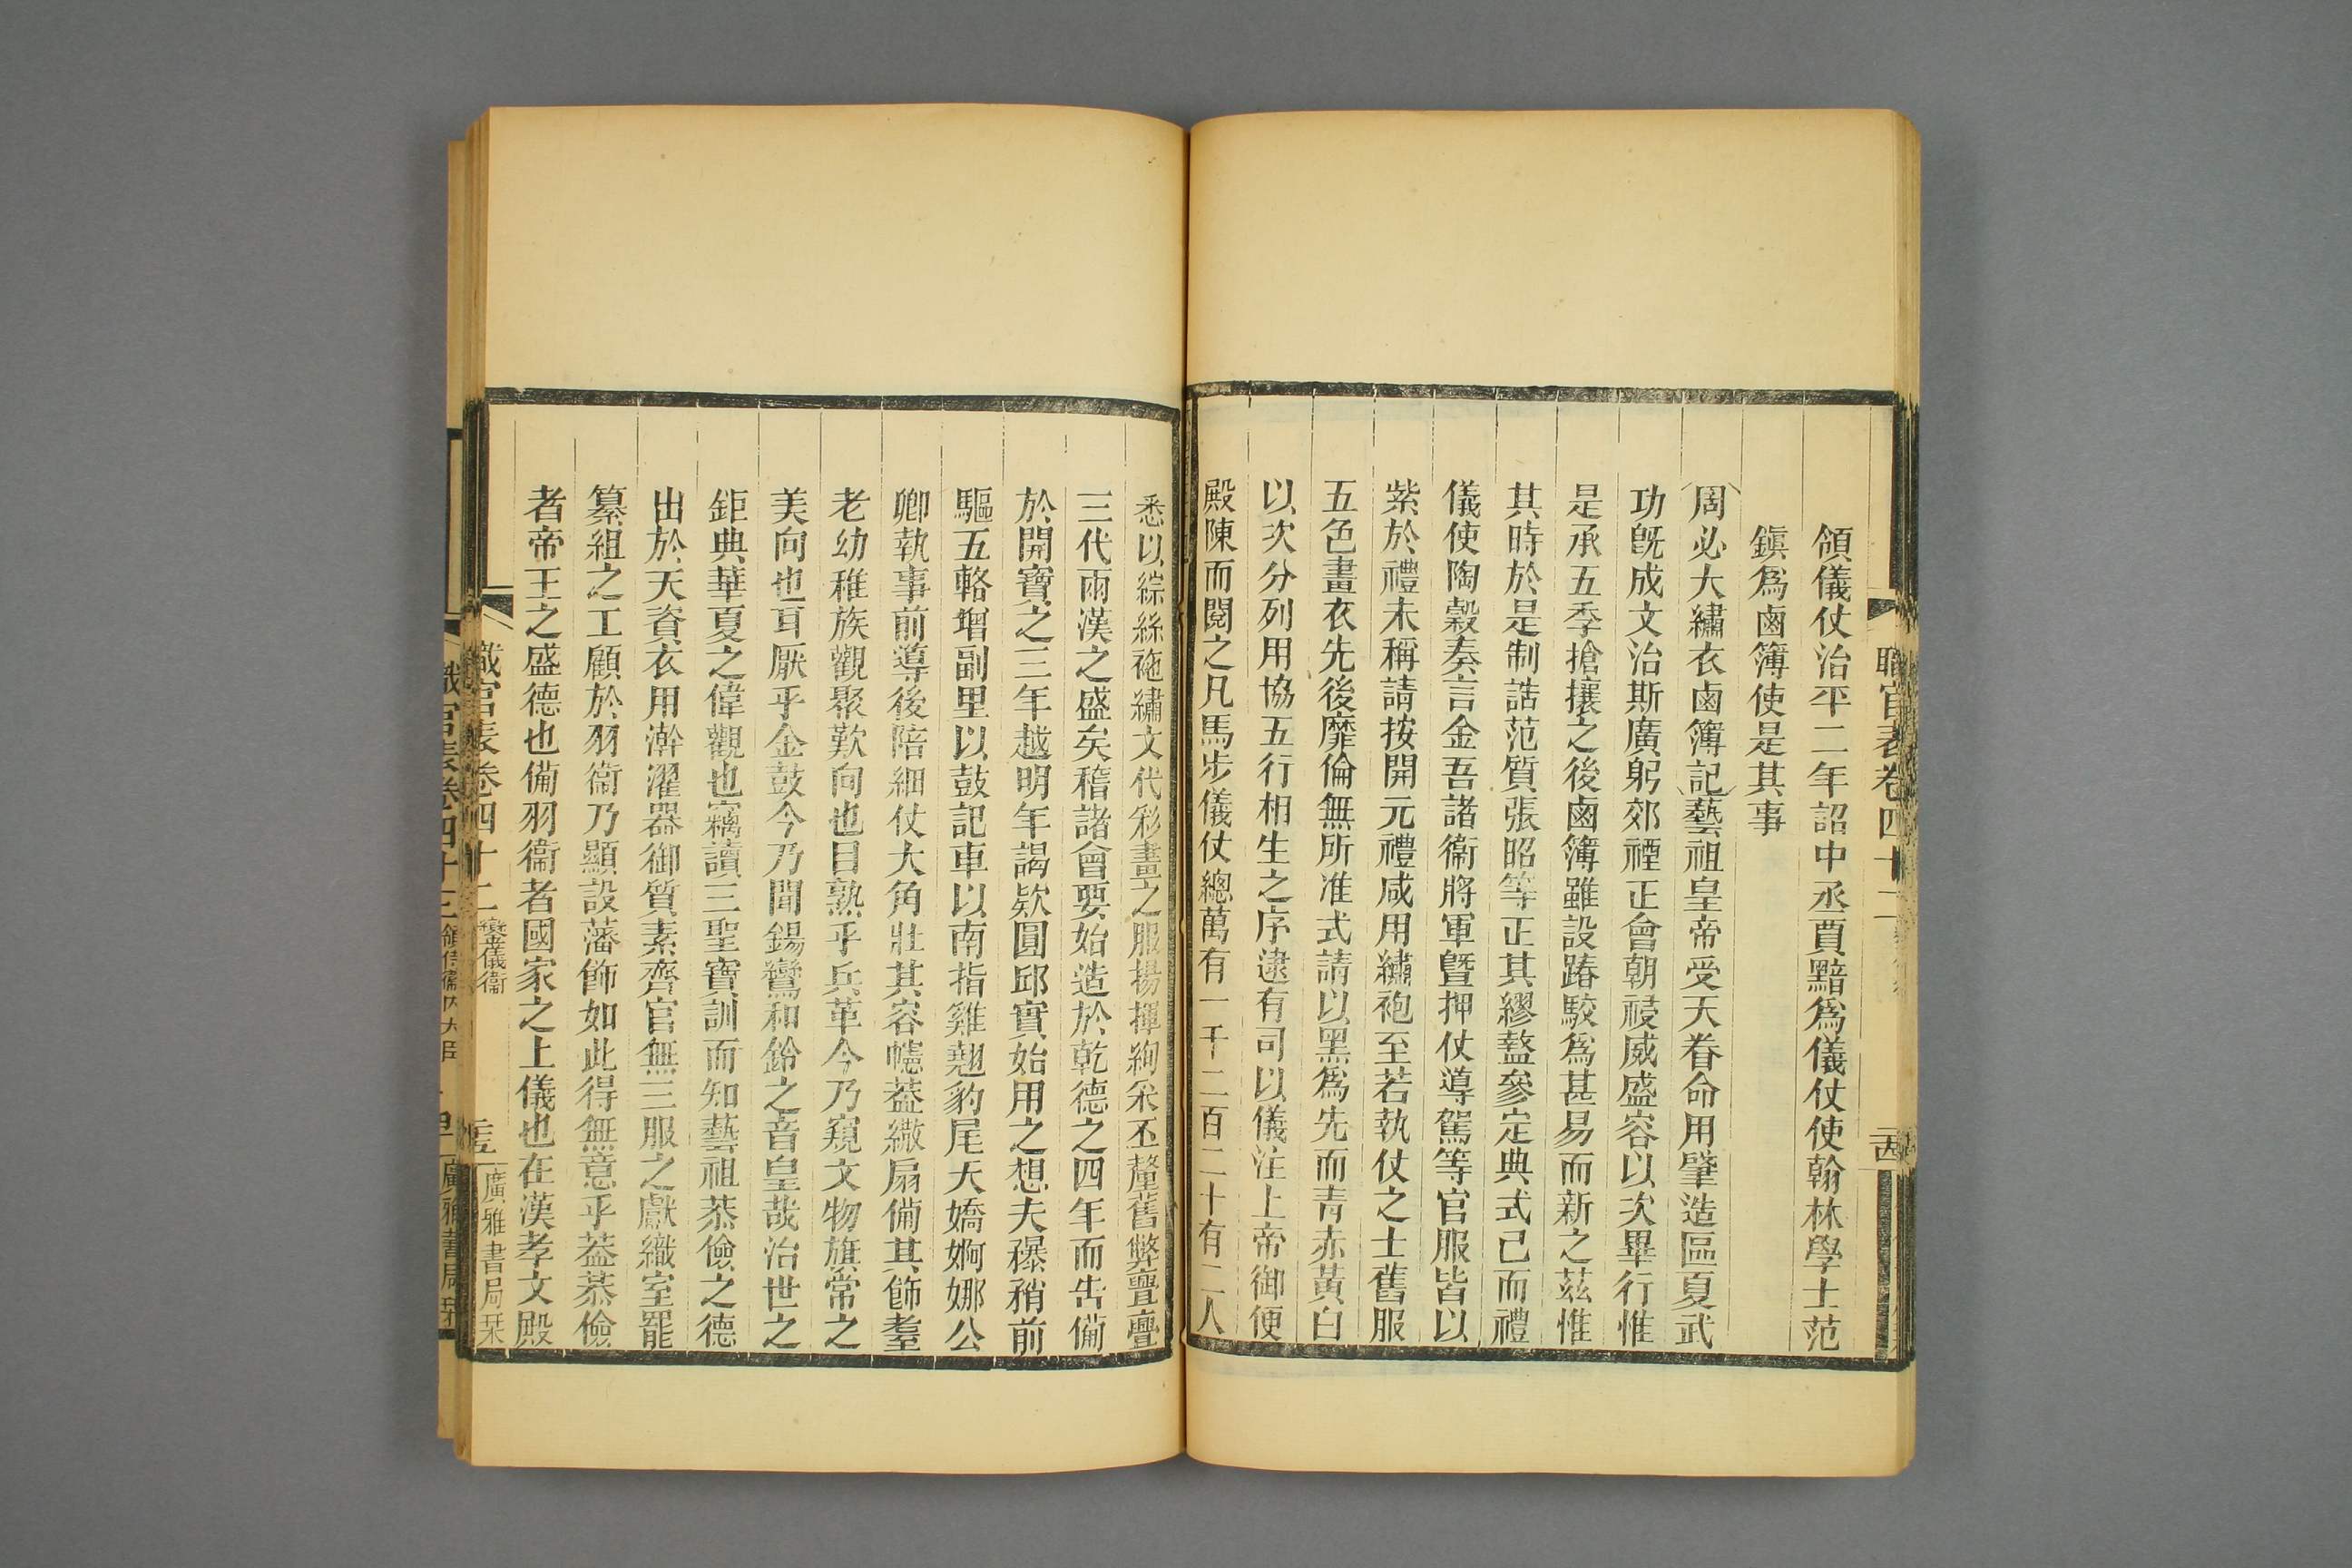 職官表卷四十二
領儀仗治平二年詔中丞賈黯爲儀仗使翰林學士范
鎭爲鹵簿使是其事
周必大繡衣鹵簿記藝祖皇帝受天眷命用肇造區夏武
功旣成文治斯廣躬郊禋正會朝祲威盛容以次畢行惟
是承五季搶攘之後鹵簿雖設踳駮爲甚易而新之茲惟
其時於是制誥范質張昭等正其繆盭參定典式已而禮
儀使陶穀奏言金吾諸衞將軍曁押仗導駕等官服皆以
紫於禮未稱請按開元禮咸用繡袍至若執仗之士舊服
五色畫衣先後靡倫無所准式請以黑爲先而靑赤黃白
以次分列用協五行相生之序逮有司以儀注上帝御便
殿陳而閱之凡馬步儀仗總萬有一千二百二十有二人
悉以綜絲袘繡文代彩畫之服揚揮絢采丕釐舊弊亹亹
三代兩漢之盛矣稽諸會要始造於乾德之四年而告備
於開寶之三年越明年謁欵圓邱實始用之想夫𥜼矟前
驅五輅增副里以鼓記車以南指雞翹豹尾天嬌婀娜公
卿執事前導後陪細仗大角壯其容幰葢繖扇備其飾耋
老幼稚族觀聚歎向也目熟乎兵革今乃窺文物旗常之
美向也耳厭乎金鼓今乃聞鍚鸞和鈴之音皇哉治世之
鉅典華夏之偉觀也竊讀三聖寶訓而知藝祖恭儉之德
出於天資衣用澣濯器御質素齊官無三服之獻織室罷
纂組之工顧於羽衞乃顯設藩飾如此得無意乎葢恭儉
者帝王之盛德也備羽衞者國家之上儀也在漢孝文殿
職官表卷四十二 鑾儀衞 廣雅書局栞